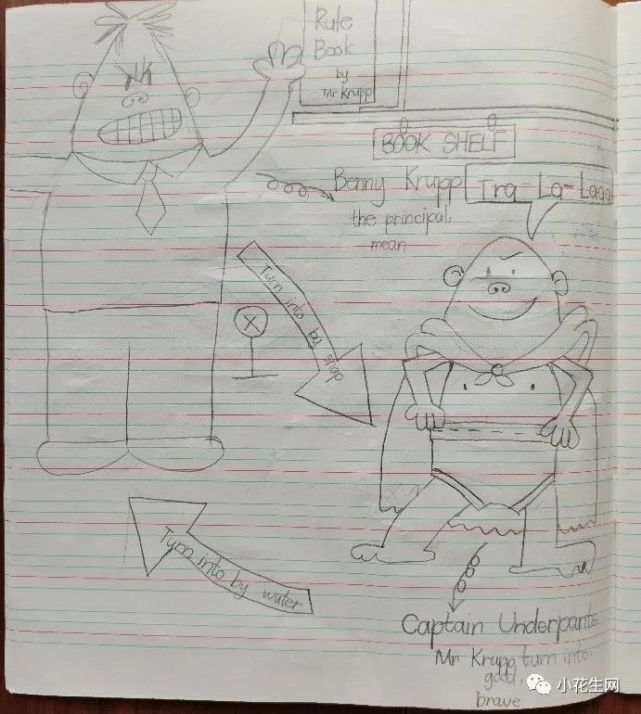 Rule
Book
by
Mr Krupp
BOOK SHELF
Benny Krupp
the principal,
mean
Tra-La-Laaa
Turn into by snap
Turn into by water
Captain Underpants
Mr Krupp turn into
good,
brave
小花生网